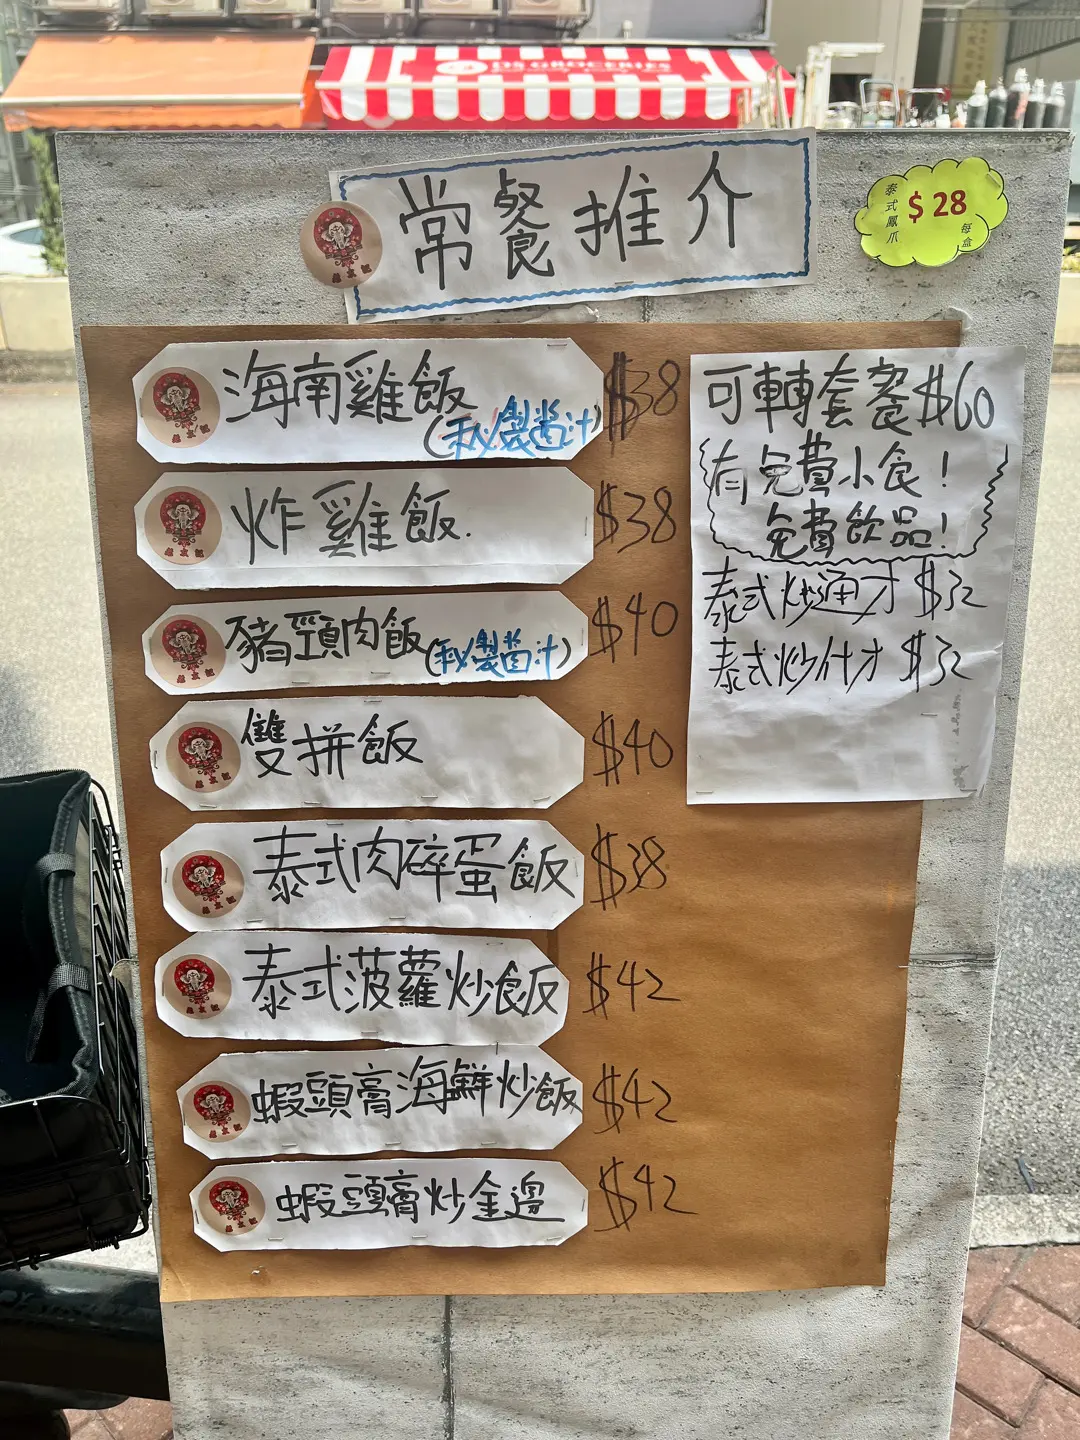 DS GROCERIES
常餐推介
泰式鳳爪
$28
每盒
海南雞飯 $38
(秘製醬汁)
炸雞飯. $38
豬頸肉飯(秘製酱汁) $40
雙拼飯 $40
泰式肉碎蛋飯 $38
泰式菠蘿炒飯 $42
蝦頭膏海鮮炒飯 $42
蝦頭膏炒金邊 $42
可轉套餐$60
有免費小食！
免費飲品！
泰式炒通才 $32
泰式炒什才 $32